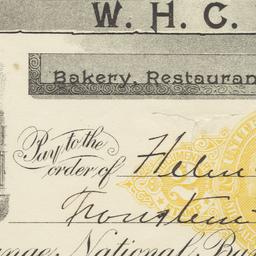 W. H. C.
Bakery, Restauran
Pay to the
order of Helm
ange National Ba